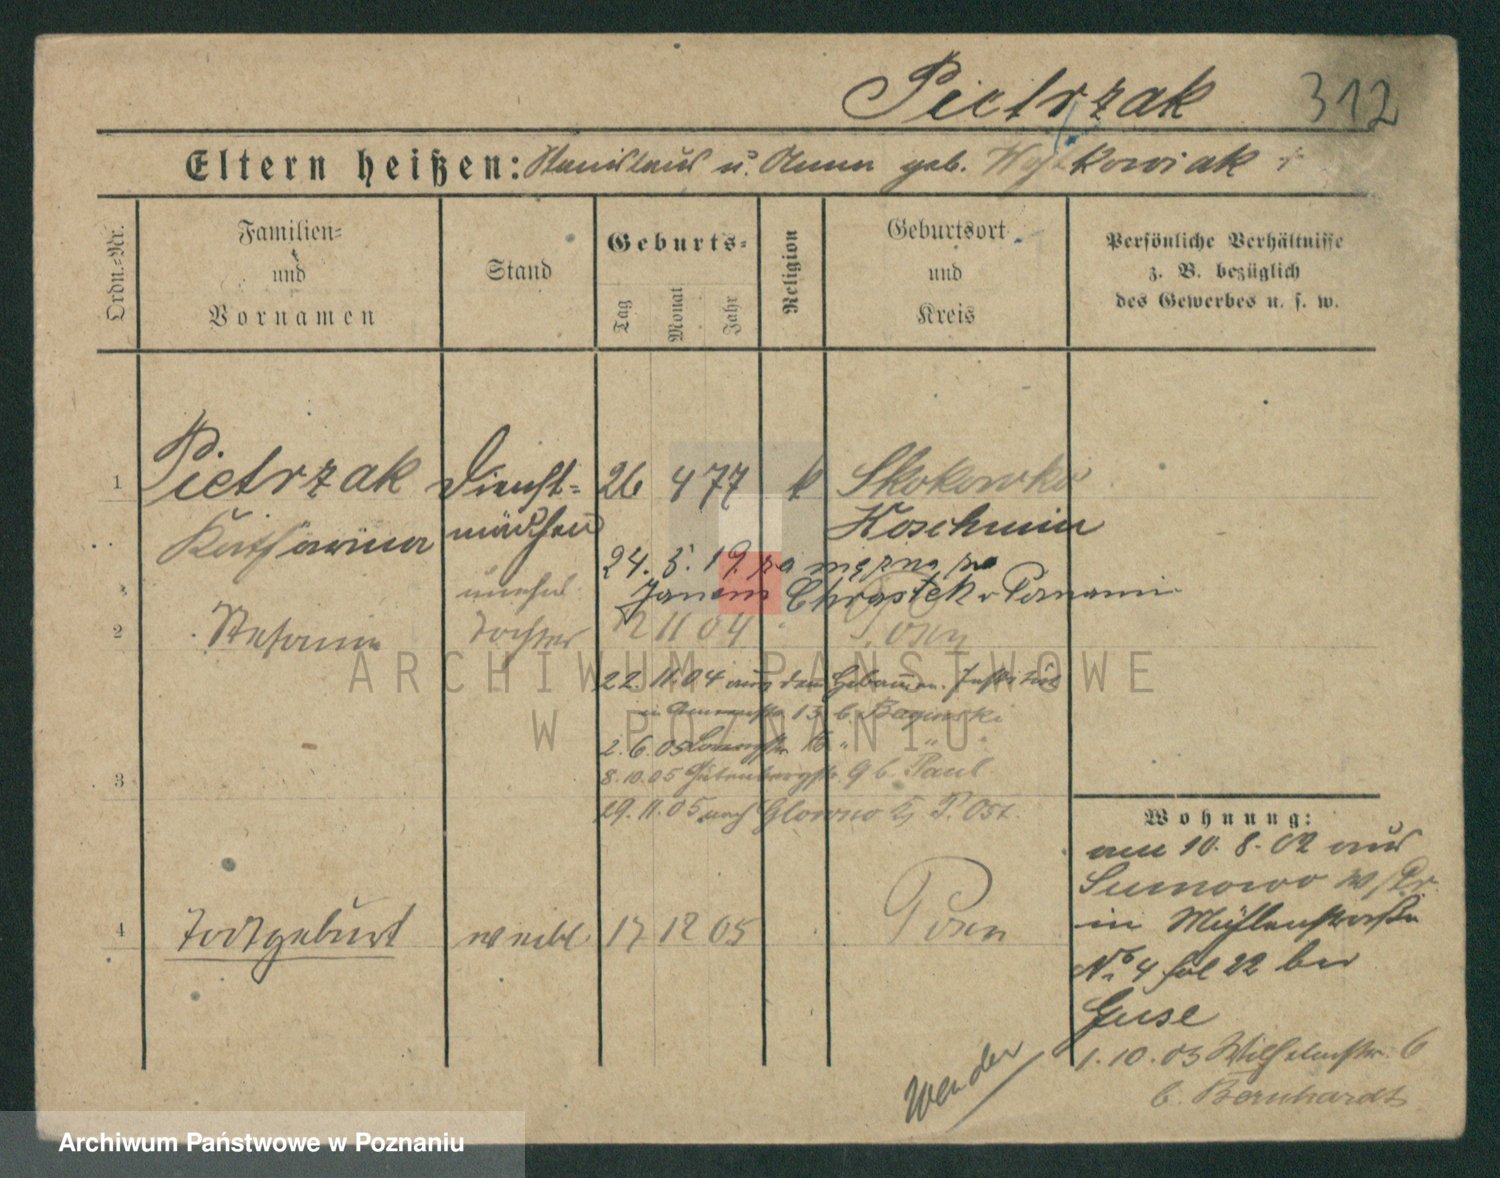 Pietrzak 312
Eltern heißen: Stanislaus u. Anna geb. kowiak
Ordn.=Nr.
Familien= und Vornamen
Stand
Geburts=
Tag Monat Jahr
Religion
Geburtsort und Kreis
Persönliche Verhältnisse
z. B. bezüglich
des Gewerbes u. s. w.
1 Pietrzak Dienst= 26 4 77 k Skokowko
Katharina mädchen Koschmin
24. 5. 19 za mężna za
unehel. Janem Chrąstek v Poznani
2 Stefania Tochter 12 11 04 Posen
22. 11. 04 aus dem Hebammen.
in 13 b. Baginski
2. 6. 05 " " "
3 8. 10. 05 Gutenbergstr. 9 b. Paul
29. 11. 05 nach Glowno Kr. P. Ost.
4 Todtgeburt weibl 17 12 05 Posen
Wohnung:
am 10. 8. 02 aus
Lumowo W/Pr.
in Mühlenstraße
No. 4 22 bei
Guse
1. 10. 03 Wilhelmstr. 6
b. Bernhardt
Wenden
ARCHIWUM PAŃSTWOWE
W POZNANIU
Archiwum Państwowe w Poznaniu